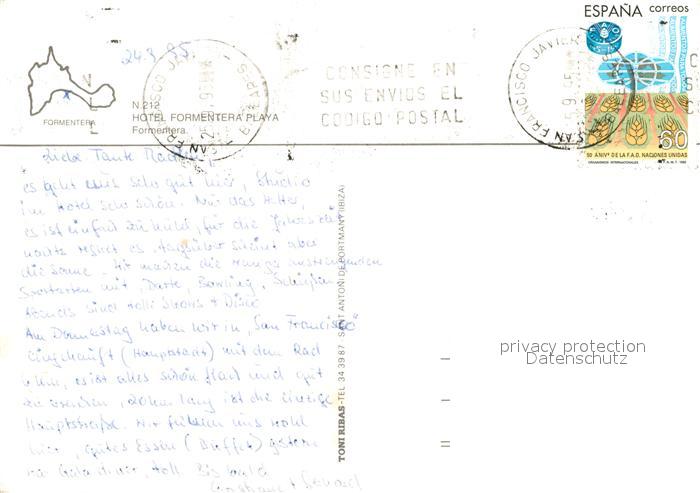 24.9.95
ESPAÑA correos
CONSIGNE EN
SUS ENVIOS EL
CODIGO POSTAL
SAN FRANCISCO JAVIER
BALEARES
50 ANIVº DE LA F.A.O. NACIONES UNIDAS
60
FORMENTERA
N.212
HOTEL FORMENTERA PLAYA
Formentera.
Liebe Tante
es geht uns sehr gut hier, Studio
im Hotel sehr schön. Nur das Wetter,
es ist einfach zu kühl, für die Jahreszeit
nachts regnet es, tagsüber scheint aber
die Sonne. Wir machen die
Sportarten mit, Darts, Bowling, Schießen
Abends sind tolle Shows + Disco
Am Donnerstag haben wir in "San Francisco"
eingekauft (Hauptstadt) mit dem Rad
hin, es ist alles schön flach und gut
zu, 20 km lang ist die einzige
Hauptstraße. Wir fühlen uns wohl
hier, gutes Essen (Buffet) gestern
war Galadiner, toll. Bis bald
TONI RIBAS - TEL. 34 39 87 SANT ANTONI DE PORTMANY (IBIZA)
privacy protection
Datenschutz